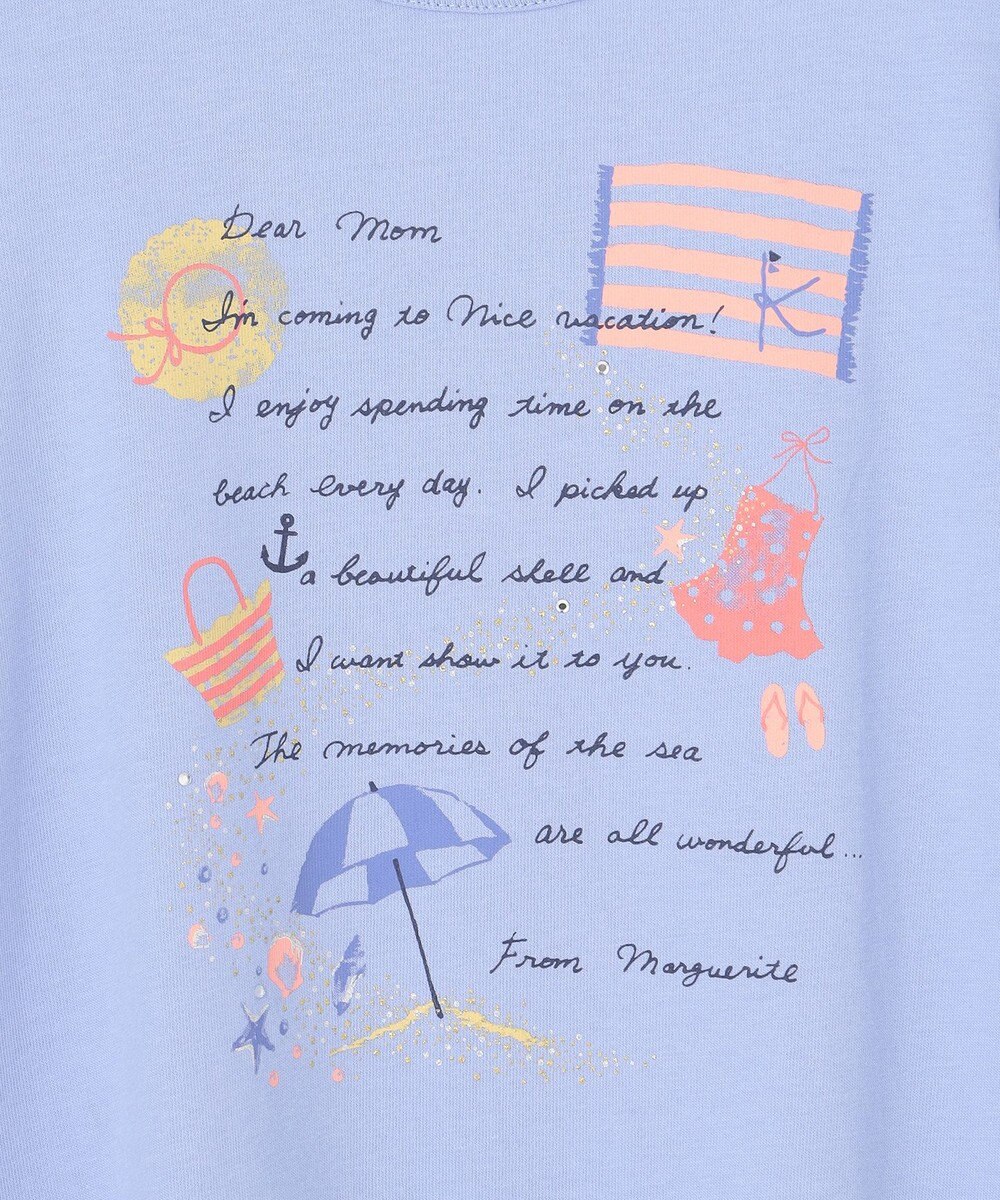 Dear Mom
I'm coming to Nice vacation!
I enjoy spending time on the
beach every day. I picked up
a beautiful shell and
I want show it to you.
The memories of the sea
are all wonderful...
From Marguerite